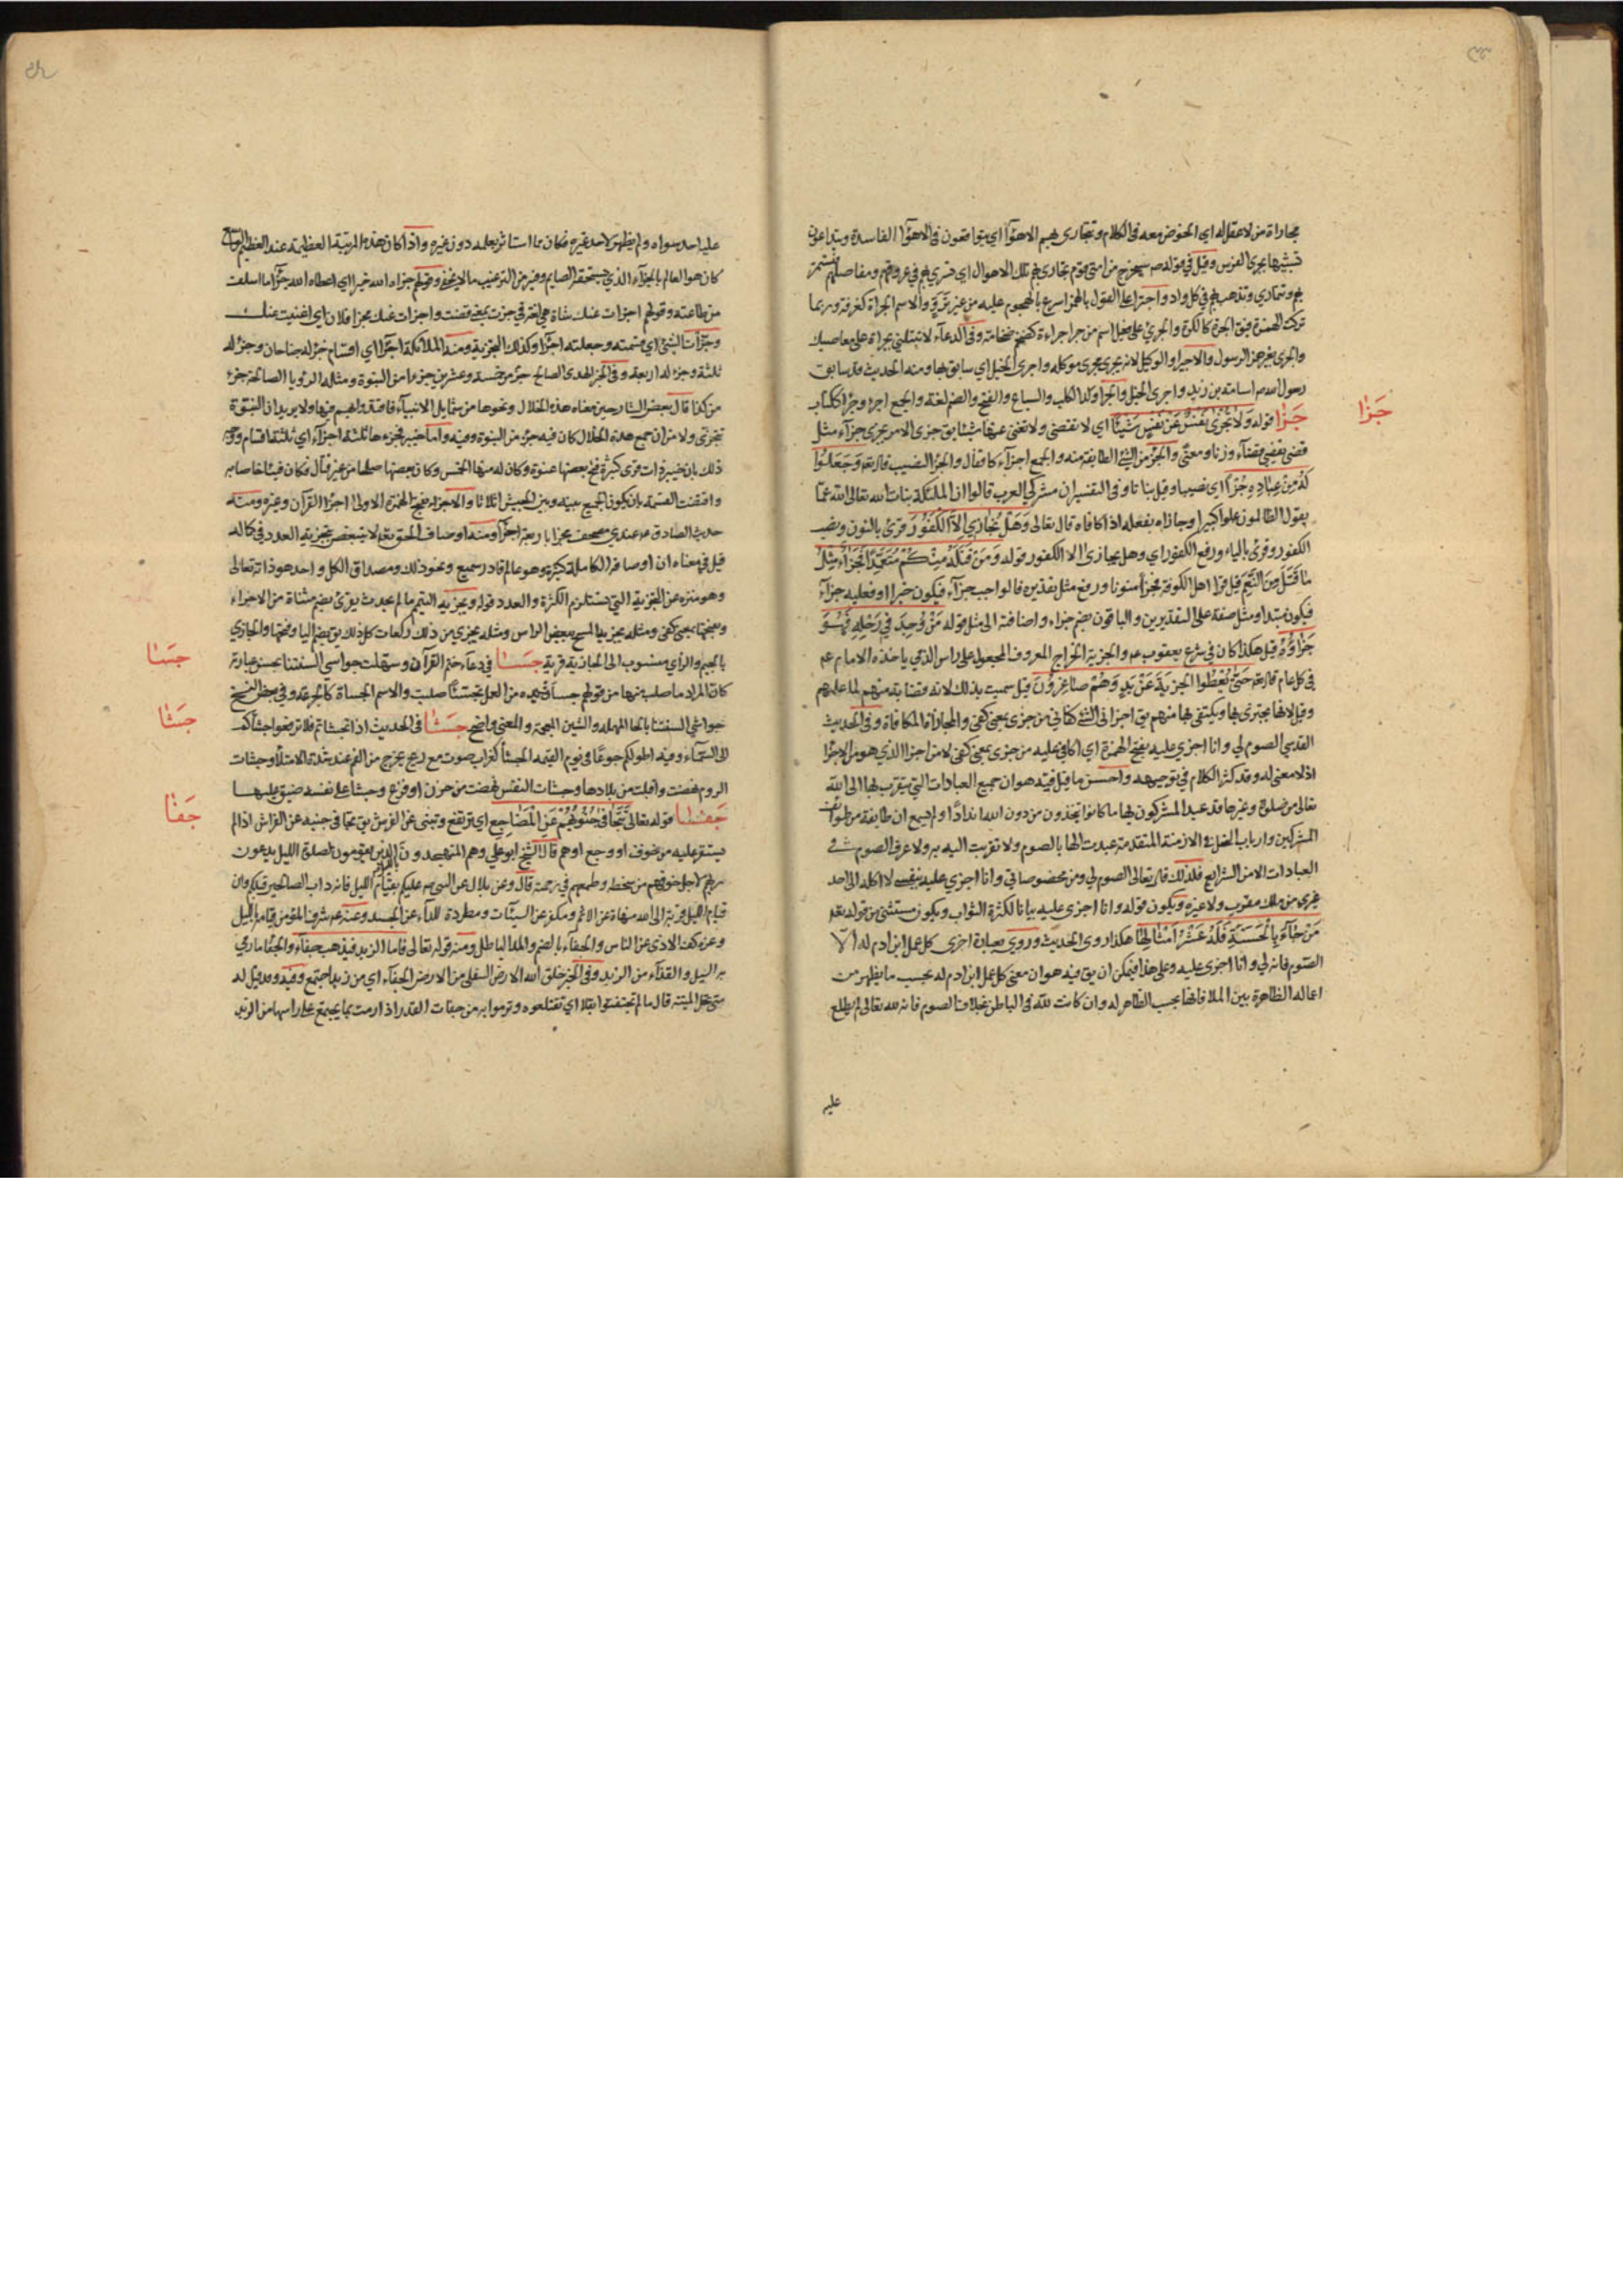 مجاراة من لا عقل له اي الخوض معه في الكلام وتجارى بهم الاهوآء اي يتواقعون في الاهوآء الفاسدة ويتداعون
تشبيها بجرى الفرس وقيل في قوله ص سيخرج من امتي قوم تجارى بهم تلك الاهوال اي تسري بهم في عروقهم ومفاصلهم فتستمر
بهم وتتمادي وتذهب بهم في كل واد واجترا على القول بالهمز اسرع بالهجوم عليه من غير تروٍ والاسم الجراة كغرفة وربما
تركت الهمزة فيق الجرة كالكرة والجريّ على فعيل اسم من جرا جراءة كضخم ضخامة وفي الدعآء لا تبتلني بجراة على معاصيك
والجرى بغير همز الرسول والاجير والوكيل لانه يجرى مجرى موكله واجرى الخيل اي سابق بها ومنه الحديث قد سابق
رسول الله ص اسامة بن زيد واجرى الخيل والجرا ولد الكلب والسباع والفتح والضم لغة والجمع اجر وجرآ ككتاب
جزا قوله ولا تجزى نفس عن نفس شيئا اي لا تقضى ولا تغنى عنها شيئا يق جزى الامر يجزى جزآء مثل
جزا
قضى يقضي قضآء وزنا ومعنى والجزء من الشئ الطايفة منه والجمع اجزآء كاقفال والجزء النصيب قال تع وجعلوا
له من عباده جزءا اي نصيبا وقيل بناتا وفي التفسير ان مشركي العرب قالوا ان الملئكة بنات الله تعالى الله عما
يقول الظالمون علوا كبيرا وجازاه بفعله اذا كافاه قال تعالى وهل نجازي الا الكفور وقرئ بالنون ونصب
الكفور وقرئ بالياء ورفع الكفور اي وهل يجازى الا الكفور قوله ومن قتله منكم متعمدا فجزاء مثل
ما قتل من النعم قيل قرا اهل الكوفة فجزآ منونا ورفع مثل بتقدير فالواجب جزآء فيكون خبرا او فعليه جزآء
فيكون مبتدا ومثل صفة على التقديرين والباقون بضم جزاء واضافته الى مثل قوله من وجد في رحله فهو
جزاؤه قيل هكذا كان في شرع يعقوب ع والجزية الخراج المعروف المجعول على راس الذمي ياخذه الامام ع
في كل عام قال تع حتى يعطوا الجزية عن يد وهم صاغرون قيل سميت بذلك لانه قضاء منهم لما عليهم
وقيل لانها يجتزى بها ويكتفى بها منهم يق اجزانى الشئ كفانى من جزى بمعنى كفى والمجازاة المكافاة وفي الحديث
القدسي الصوم لي وانا اجزي عليه بفتح الهمزة اي اكافي عليه من جزى بمعنى كفى لا من اجزا الذي هو من الاجزا
اذ لا معنى له وقد كثر الكلام في توجيهه واحسن ما قيل فيه هو ان جميع العبادات التي يتقرب بها الى الله
تعالى من صلوة وغيرها قد عبد المشركون بها ما كانوا يتخذون من دون الله اندادا ولم يسمع ان طايفة من طوائف
المشركين وارباب النحل في الازمنة المتقدمة عبدت الها بالصوم ولا تقربت اليه به ولا عرف الصوم في
العبادات الا من الشرايع فلذلك قال تعالى الصوم لي ومن مخصوصاتي وانا اجزي عليه بنفسي لا اكله الى احد
غيرى من ملك مقرب ولا غيره ويكون قوله وانا اجزى عليه بيانا لكثرة الثواب ويكون مستثنى من قوله تع
من جآء بالحسنة فله عشر امثالها هكذا روى الحديث وروي بعبارة اخرى كل عمل ابن ادم له الا
الصوم فانه لي وانا اجزى عليه وعلى هذا فيمكن ان يق فيه هو ان معنى كل عمل ابن ادم له بحسب ما يظهر من
اعماله الظاهرة بين الملا فانها بحسب الظاهر له وان كانت لله في الباطن بخلاف الصوم فانه لله تعالى لم يطلع
عليه
عليه احد سواه ولم يظهر لاحد غيره فكان مما استاثر بعلمه دون غيره واذا كان هذه المرتبة العظيمة عند العظيم
كان هو العالم بالجزآء الذي يستحقه الصايم وفيه من الترغيب ما لا يخفى وقولهم جزاه الله خيرا اي اعطاه الله جزآء ما اسلفت
من طاعته وقولهم اجزات عنك شاة هي لغة في جزت بمعنى قضت واجزات عنك مجزا فلان اي اغنيت عنك
وجزأت الشئ اي قسمته وجعلته اجزآء وكذلك التجزية ومنه الملائكة اجزآء اي اقسام جزء له جناحان وجزء له
ثلثة وجزء له اربعة وفي الخبر الهدى الصالح جزء من خمسة وعشرين جزءا من النبوة ومثله الرؤيا الصالحة جزء
من كذا قال بعض الشارحين معناه هذه الخلال ونحوها من شمايل الانبيآء فاقتدوا بهم فيها ولا يريد ان النبوة
تتجزى ولا من ان جمع هذه الخلال كان فيه جزء من النبوة وفيه واما خيبر فجزءها ثلثة اجزآء اي ثلثة اقسام ووجه
ذلك بان خيبر ذات قرى كثيرة فتح بعضها عنوة وكان له منها الخمس وكان بعضها صلحا من غير قتال فكان فيئا خاصا به
واقتضت القسمة بان يكون الجميع بينه وبين الجيش اثلاثا والاجزاء بفتح الهمزة الاولى اجزآء القرآن وغيره ومنه
حديث الصادق ع عندي مصحف مجزا باربعة اجزآء ومنه اوصاف الحق تع لا يتبعض بتجزية العدد في كماله
قيل في معناه ان اوصافه الكاملة كثيرة وهو عالم قادر سميع ونحو ذلك ومصداق الكل واحد هو ذاته تعالى
وهو منزه عن التجزية التي تستلزم الكثرة والعدد قوله ويجزيه التيمم ما لم يحدث يقرئ بضم مثناة من الاجزاء
وبفتحها بمعنى كفى ومثله يجزيه المسح ببعض الراس ومثله يجزي من ذلك ركعات كل ذلك يق بضم اليا وفتحها والجازي
بالجيم والزآي منسوب الى الجازية قرية جسا في دعآء ختم القرآن وسهلت جواسي السنتنا بحسن عبارته
جسا
كان المراد ما صلب منها من قولهم جسات يده من العمل تجسئا صلبت والاسم الجساة كالجرعة وفي بعض النسخ
حواشي السنتنا بالحا المهملة والشين المعجمة والمعنى واضح جشا في الحديث اذا تجشاتم فلا ترفعوا جشاكم
جشا
الى السمآء وفيه اطولكم جوعا في يوم القيمة الجشأ كغراب صوت مع ريح يخرج من الفم عند شدة الامتلآء وجشات
الروم نهضت واقبلت من بلادها وجشات النفس نهضت من حزن او فزع وجشا على نفسه ضيق عليها
جفا قوله تعالى تتجافى جنوبهم عن المضاجع اي ترتفع وتنبى عن الفرش يق تجافى جنبه عن الفراش اذا لم
جفا
يستقر عليه من خوف او وجع او هم قال الشيخ ابو علي وهم المتهجدون الذين يقومون لصلوة الليل يدعون
ربهم لاجل خوفهم من سخطه وطمعهم في رحمته قال وعن بلال عن النبي ص عليكم بقيام الليل فانه داب الصالحين قبلكم وان
قيام الليل قربة الى الله منهاة عن الاثم ومكفر عن السيئات ومطردة للدآء عن الجسد وعنه ع شرف المؤمن قيامه بالليل
وعزه كف الاذى عن الناس والجفآء بالضم والمد الباطل ومنه قوله تعالى فاما الزبد فيذهب جفآء والجفآء ما رمى
به السيل والقذآء من الزبد وفي الخبر خلق الله الارض السفلى من الارض الجفآء اي من زبد اجتمع وفيه وقد قيل له
متى تحل الميتة قال ما لم تجتفئوا بقلا اي تقتلعوه وترموا به من جفات القدر اذا رمت بما يجتمع على راسها من الزبد